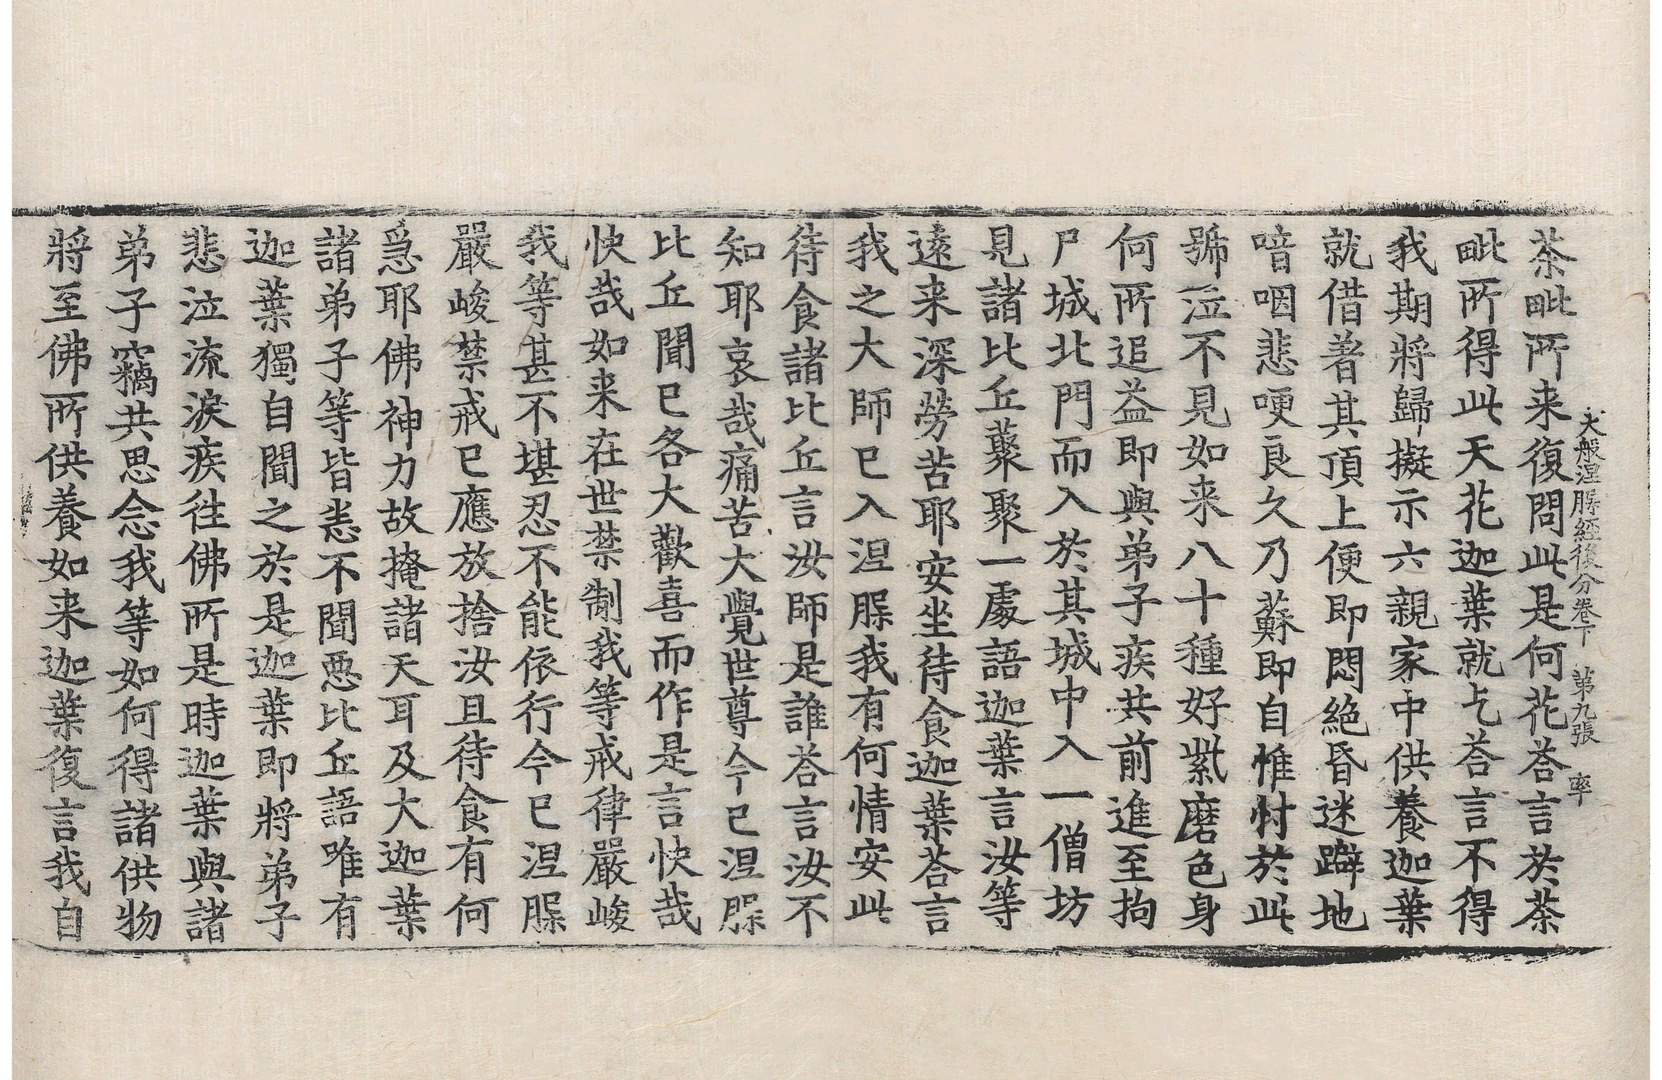 大般涅槃經後分卷下 第九張 率
茶毗所来復問此是何花荅言於茶
毗所得此天花迦葉就乞荅言不得
我期將歸擬示六親家中供養迦葉
就借著其頂上便即悶絕昏迷躃地
喑咽悲哽良久乃蘇即自惟忖於此
號泣不見如来八十種好紫磨色身
何所追益即與弟子疾共前進至拘
尸城北門而入於其城中入一僧坊
見諸比丘藂聚一處語迦葉言汝等
遠来深勞苦耶安坐待食迦葉荅言
我之大師已入涅槃我有何情安此
待食諸比丘言汝師是誰荅言汝不
知耶哀哉痛苦大覺世尊今已涅槃
比丘聞已各大歡喜而作是言快哉
快哉如来在世禁制我等戒律嚴峻
我等甚不堪忍不能依行今已涅槃
嚴峻禁戒已應放捨汝且待食有何
急耶佛神力故掩諸天耳及大迦葉
諸弟子等皆悉不聞惡比丘語唯有
迦葉獨自聞之於是迦葉即將弟子
悲泣流淚疾往佛所是時迦葉與諸
弟子竊共思念我等如何得諸供物
將至佛所供養如来迦葉復言我自